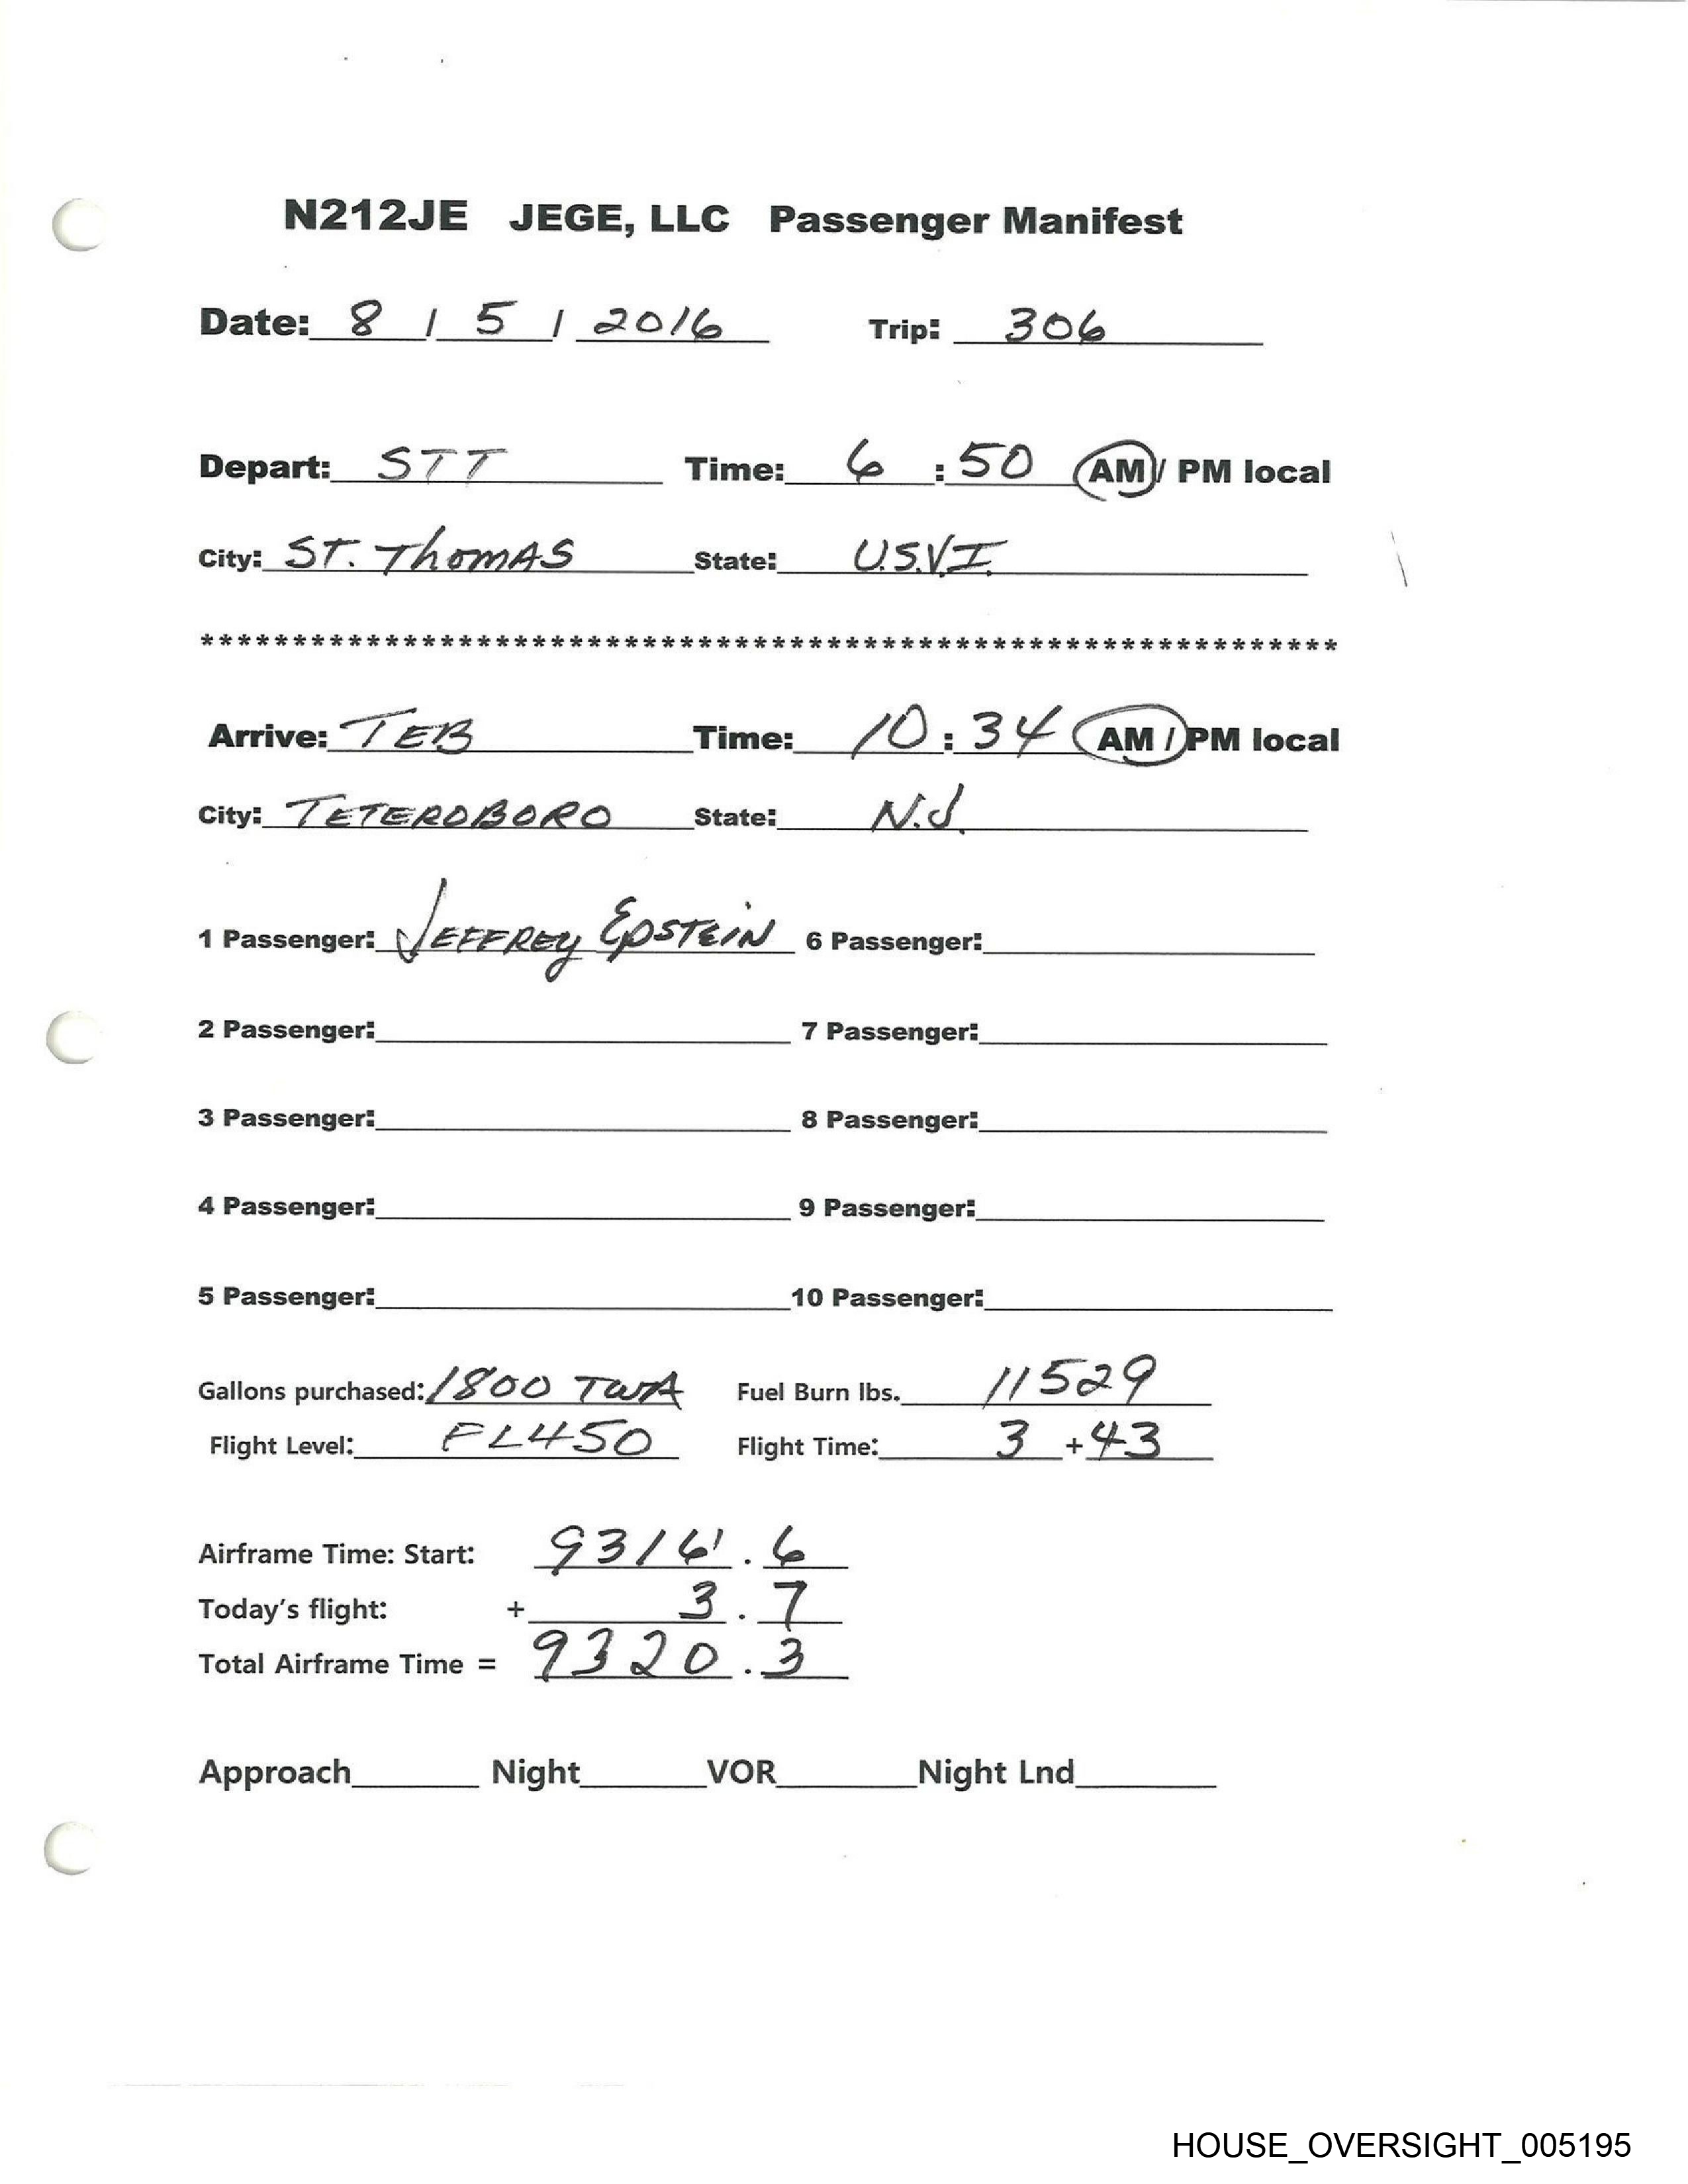 N212JE JEGE, LLC Passenger Manifest
Date: 8 / 5 / 2016 Trip: 306
Depart: STT Time: 6 : 50 AM / PM local
City: ST. ThomAS State: U.S.V.I.
*****************************************************************
Arrive: TEB Time: 10 : 34 AM / PM local
City: TETEROBORO State: N.J.
1 Passenger: JEFFREY EPSTEIN 6 Passenger:
2 Passenger: 7 Passenger:
3 Passenger: 8 Passenger:
4 Passenger: 9 Passenger:
5 Passenger: 10 Passenger:
Gallons purchased: 1800 TWA Fuel Burn lbs. 11529
Flight Level: FL450 Flight Time: 3 + 43
Airframe Time: Start: 9316 . 6
Today's flight: + 3 . 7
Total Airframe Time = 9320 . 3
Approach Night VOR Night Lnd
HOUSE_OVERSIGHT_005195